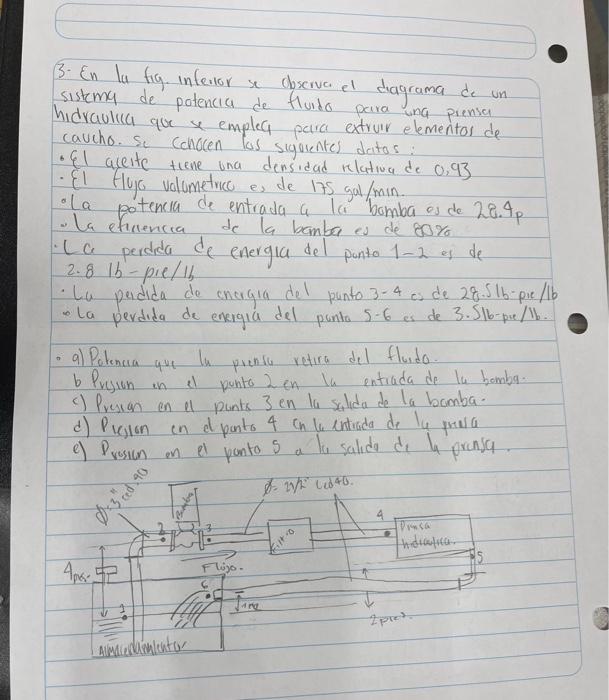 3- En la fig. inferior se observa el diagrama de un
sistema de potencia de fluido para una prensa
hidraulica que se emplea para extruir elementos de
caucho. Se conocen los siguientes datos:
• El aceite tiene una densidad relativa de 0,93
- El flujo volumetrico es de 175 gal/min.
• La potencia de entrada a la bomba es de 28.4p
• La eficiencia de la bomba es de 80%
• La perdida de energia del punto 1-2 es de
2.8 lb-pie/lb
• La perdida de energia del punto 3-4 es de 28.5lb-pie/lb
• La perdida de energia del punto 5-6 es de 3.5lb-pie/lb.
• a) Potencia que la prensa retira del fluido.
b Presion en el punto 2 en la entrada de la bomba.
c) Presion en el punto 3 en la salida de la bomba.
d) Presion en el punto 4 en la entrada de la prensa
e) Presion en el punto 5 a la salida de la prensa.
Ø= 3" ced 40
Bomba
Ø= 2 1/2" Ced 40.
2
3
Filtro
4
Prensa
hidraulica.
5
Flujo.
4 pies.
6
1
1 pie
2 pies
Almacenamiento